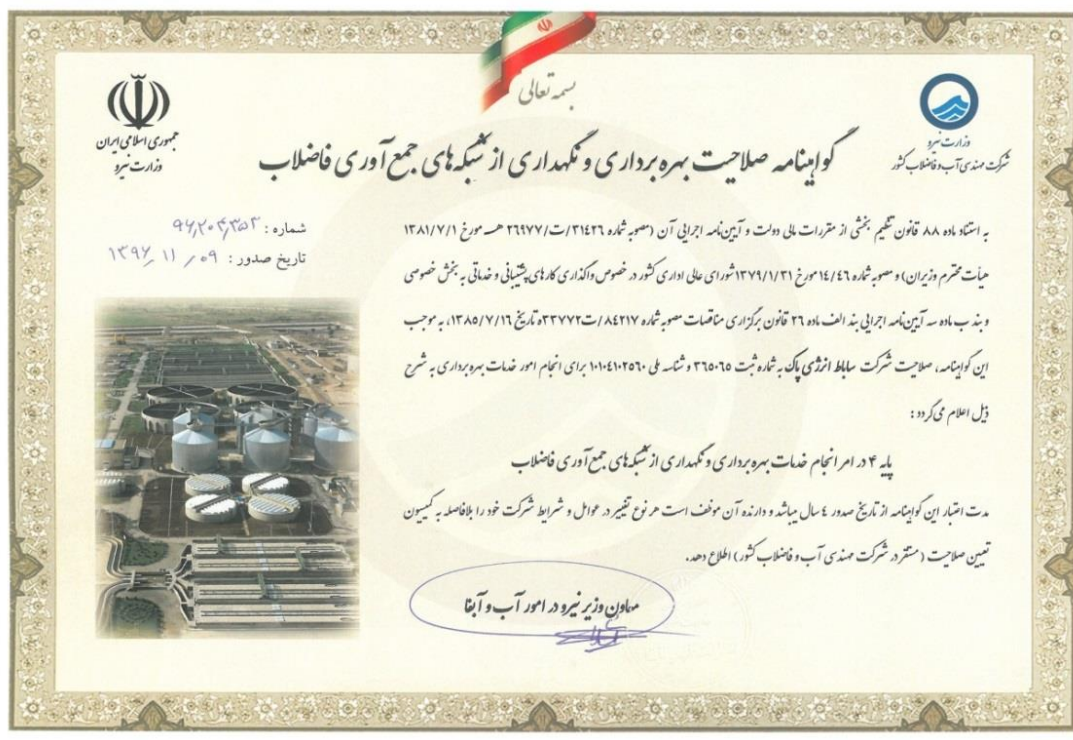 بسمه تعالی
وزارت نیرو
شرکت مهندسی آب و فاضلاب کشور
جمهوری اسلامی ایران
وزارت نیرو
گواهینامه صلاحیت بهره برداری و نگهداری از شبکه های جمع آوری فاضلاب
شماره : ۹۶٫۲۰۴٫۳۵۳
تاریخ صدور : ۱۳۹۶ ٫ ۱۱ ٫ ۰۹
به استناد ماده ۸۸ قانون تنظیم بخشی از مقررات مالی دولت و آیین‌نامه اجرایی آن (مصوبه شماره ۳۱۴۲۶/ت/۲۶۹۷۷ هـ مورخ ۱۳۸۱/۷/۱
هیأت محترم وزیران) و مصوبه شماره ۱۴/٤٦ مورخ ۱۳۷۹/۱/۳۱ شورای عالی اداری کشور در خصوص واگذاری کارهای پشتیبانی و خدماتی به بخش خصوصی
و بند ب ماده سه آیین‌نامه اجرایی بند الف ماده ۲۶ قانون برگزاری مناقصات مصوبه شماره ۸٤۲۱۷/ت۳۳۷۷۲ه تاریخ ۱۳۸۵/۷/۱۶، به موجب
این گواهینامه، صلاحیت شرکت ساباط انرژی پاک به شماره ثبت ۳۶۵۰۶۵ و شناسه ملی ۱۰۱۰٤۱۰۲۵۶۰ برای انجام امور خدمات بهره برداری به شرح
ذیل اعلام می‌گردد :
پایه ۴ در امر انجام خدمات بهره برداری و نگهداری از شبکه های جمع آوری فاضلاب
مدت اعتبار این گواهینامه از تاریخ صدور ٤ سال میباشد و دارنده آن موظف است هر نوع تغییر در عوامل و شرایط شرکت خود را بلافاصله به کمیسیون
تعیین صلاحیت (مستقر در شرکت مهندسی آب و فاضلاب کشور) اطلاع دهد.
معاون وزیر نیرو در امور آب و آبفا